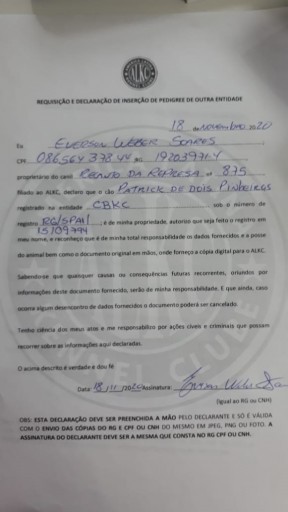 ALKC
REQUISIÇÃO E DECLARAÇÃO DE INSERÇÃO DE PEDIGREE DE OUTRA ENTIDADE
18 de NOVEMBRO 2020
Eu EVERSON WEBER SOARES,
CPF 086564378 44 RG 19203971-4
proprietário do canil RECANTO DA REPRESA nº 875
filiado ao ALKC, declaro que o cão PATRICK DE DOIS PINHEIROS
registrado na entidade CBKC sob o número de
registro RG/SPAI 15/09794, é de minha propriedade, autorizo que seja feito o registro em
meu nome, e reconheço que é de minha total responsabilidade os dados fornecidos e a posse
do animal bem como o documento original em mãos, onde forneço a cópia digital para o ALKC.
Sabendo-se que quaisquer causas ou consequências futuras recorrentes, oriundos por
informações deste documento fornecido, serão de minha responsabilidade. E que ainda, caso
ocorra algum desencontro de dados fornecidos o documento poderá ser cancelado.
Tenho ciência dos meus atos e me responsabilizo por ações cíveis e criminais que possam
recorrer sobre as informações aqui declaradas.
O acima descrito é verdade e dou fé
Data: 18/11/2020 Assinatura:
(Igual ao RG ou CNH)
OBS: ESTA DECLARAÇÃO DEVE SER PREENCHIDA A MÃO PELO DECLARANTE E SÓ É VÁLIDA
COM O ENVIO DAS CÓPIAS DO RG E CPF OU CNH DO MESMO EM JPEG, PNG OU FOTO. A
ASSINATURA DO DECLARANTE DEVE SER A MESMA QUE CONSTA NO RG CPF OU CNH.